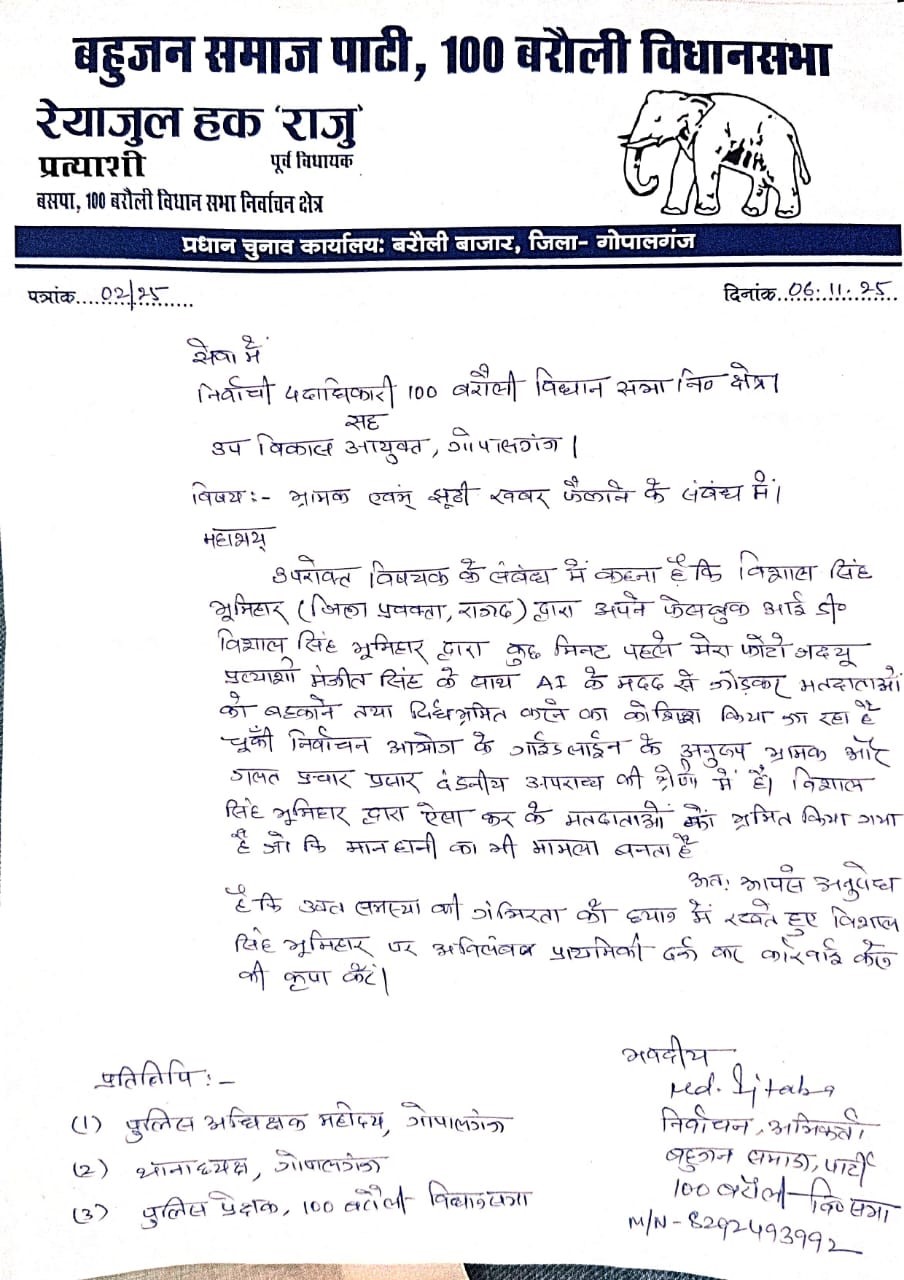 बहुजन समाज पाटी, 100 बरौली विधानसभा
रेयाजुल हक 'राजु'
प्रत्याशी पूर्व विधायक
बसपा, 100 बरौली विधान सभा निर्वाचन क्षेत्र
प्रधान चुनाव कार्यालय: बरौली बाजार, जिला- गोपालगंज
पत्रांक....02/25........ दिनांक..06.11.25
सेवा में
निर्वाची पदाधिकारी 100 बरौली विधान सभा नि० क्षेत्र।
सह
उप विकास आयुक्त, गोपालगंज।
विषय:- भ्रामक एवम् झूठी खबर फैलाने के संबंध में।
महाशय्
उपरोक्त विषयक के संबंध में कहना है कि विशाल सिंह
भूमिहार (जिला प्रवक्ता, राजद) द्वारा अपने फेसबुक आई डी०
विशाल सिंह भूमिहार द्वारा कुछ मिनट पहले मेरा फोटो जदयू
प्रत्याशी मंजीत सिंह के साथ AI के मदद से जोड़कर मतदाताओं
को बहकाने तथा दिग्भ्रमित करने का कोशिश किया जा रहा है
चूकी निर्वाचन आयोग के गाईडलाईन के अनुरूप भ्रामक और
गलत प्रचार प्रसार दंडनीय अपराध की श्रेणी में है। विशाल
सिंह भूमिहार द्वारा ऐसा कर के मतदाताओं को भ्रमित किया गया
है जो कि मानहानी का भी मामला बनता है
अत: आपसे अनुरोध
है कि उक्त समस्या की गंभिरता को ध्यान में रखते हुए विशाल
सिंह भूमिहार पर अविलंब प्राथमिकी दर्ज कर कारवाई करने
की कृपा करें।
भवदीय
Md. Ijtaba
निर्वाचन, अभिकर्ता
बहुजन समाज, पार्टी
100 बरौली-वि० सभा
M/N-8292493992
प्रतिलिपि:-
(1) पुलिस अधिक्षक महोदय, गोपालगंज
(2) थानाध्यक्ष, गोपालगंज
(3) पुलिस प्रेक्षक, 100 बरौली विधानसभा